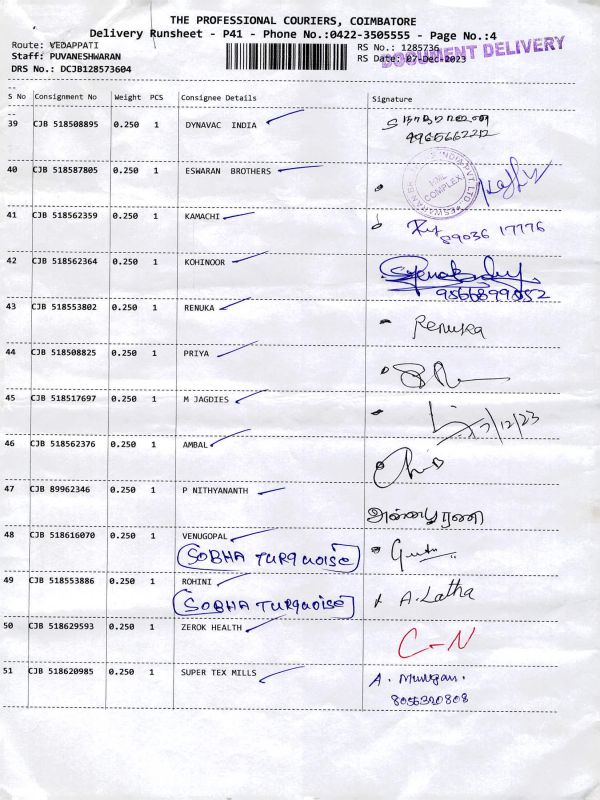 THE PROFESSIONAL COURIERS, COIMBATORE
Delivery Runsheet - P41 - Phone No.:0422-3505555 - Page No.:4
Route: VEDAPPATI RS No.: 1285736
Staff: PUVANESHWARAN RS Date: 07-Dec-2023
DOCUMENT DELIVERY
DRS No.: DCJB128573604
S No Consignment No Weight PCS Consignee Details Signature
39 CJB 518508895 0.250 1 DYNAVAC INDIA
40 CJB 518587805 0.250 1 ESWARAN BROTHERS
COMPLEX
41 CJB 518562359 0.250 1 KAMACHI
89036 17776
42 CJB 518562364 0.250 1 KOHINOOR
9566899052
43 CJB 518553802 0.250 1 RENUKA Renuka
44 CJB 518508825 0.250 1 PRIYA
45 CJB 518517697 0.250 1 M JAGDIES 7/12/23
46 CJB 518562376 0.250 1 AMBAL
47 CJB 89962346 0.250 1 P NITHYANANTH
அன்னபூரணி
48 CJB 518616070 0.250 1 VENUGOPAL
SOBHA TURQUOISE
49 CJB 518553886 0.250 1 ROHINI A. Latha
SOBHA TURQUOISE
50 CJB 518629593 0.250 1 ZEROK HEALTH C-N
51 CJB 518620985 0.250 1 SUPER TEX MILLS A. Murugan.
8056320808